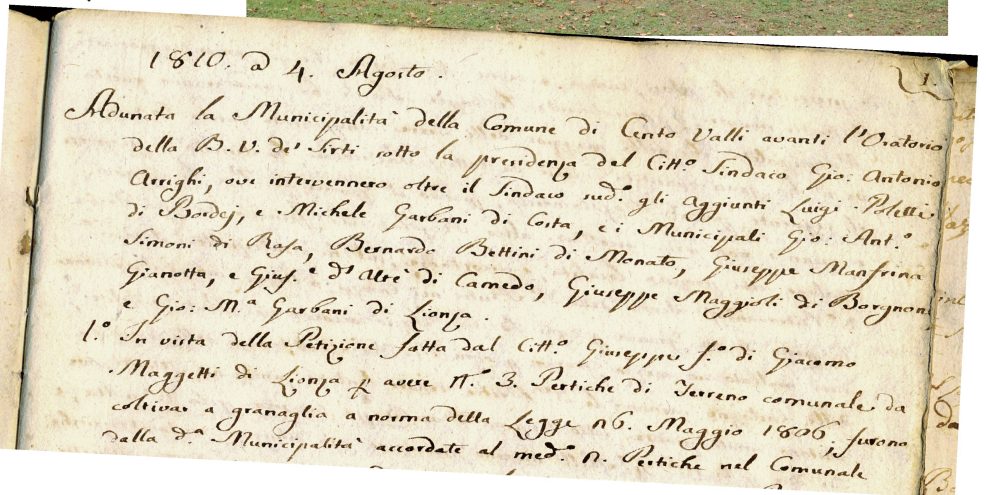 1.
1810. a 4. Agosto.
Adunata la Municipalità della Comune di Cento Valli avanti l'Oratorio
della B. V. de' Sirti sotto la presidenza del Citt.º Sindaco Gio: Antonio
Arrighi, ove intervennero oltre il Sindaco sud.º gli Aggiunti Luigi Poletti
di Bordej, e Michele Garbani di Costa, e i Municipali Gio: Ant.º
Simoni di Rasa, Bernardo Bettini di Monato, Giuseppe Manfrina
Gianotta, e Gius.e d'Alrè di Camedo, Giuseppe Maggioli di Borgnon
e Gio: M.a Garbani di Lionza.
1.º In vista della Petizione fatta dal Citt.º Giuseppe f.º di Giacomo
Maggetti di Lionza avere N.º 3. Pertiche di Terreno comunale da
coltivar a granaglia a norma della Legge 6. Maggio 1806, furono
dalla d.a Municipalità accordate al med.º n. Pertiche nel Comunale